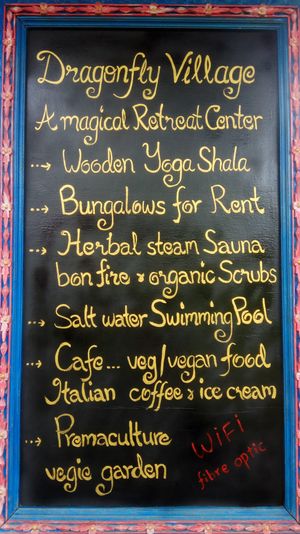 Dragonfly Village
A magical Retreat Center
⇢ Wooden Yoga Shala
⇢ Bungalows for Rent
⇢ Herbal steam Sauna
bon fire & organic Scrubs
⇢ Salt water Swimming Pool
⇢ Cafe... veg/vegan food
Italian coffee & ice cream
⇢ Premaculture
vegie garden
WiFi
fibre optic